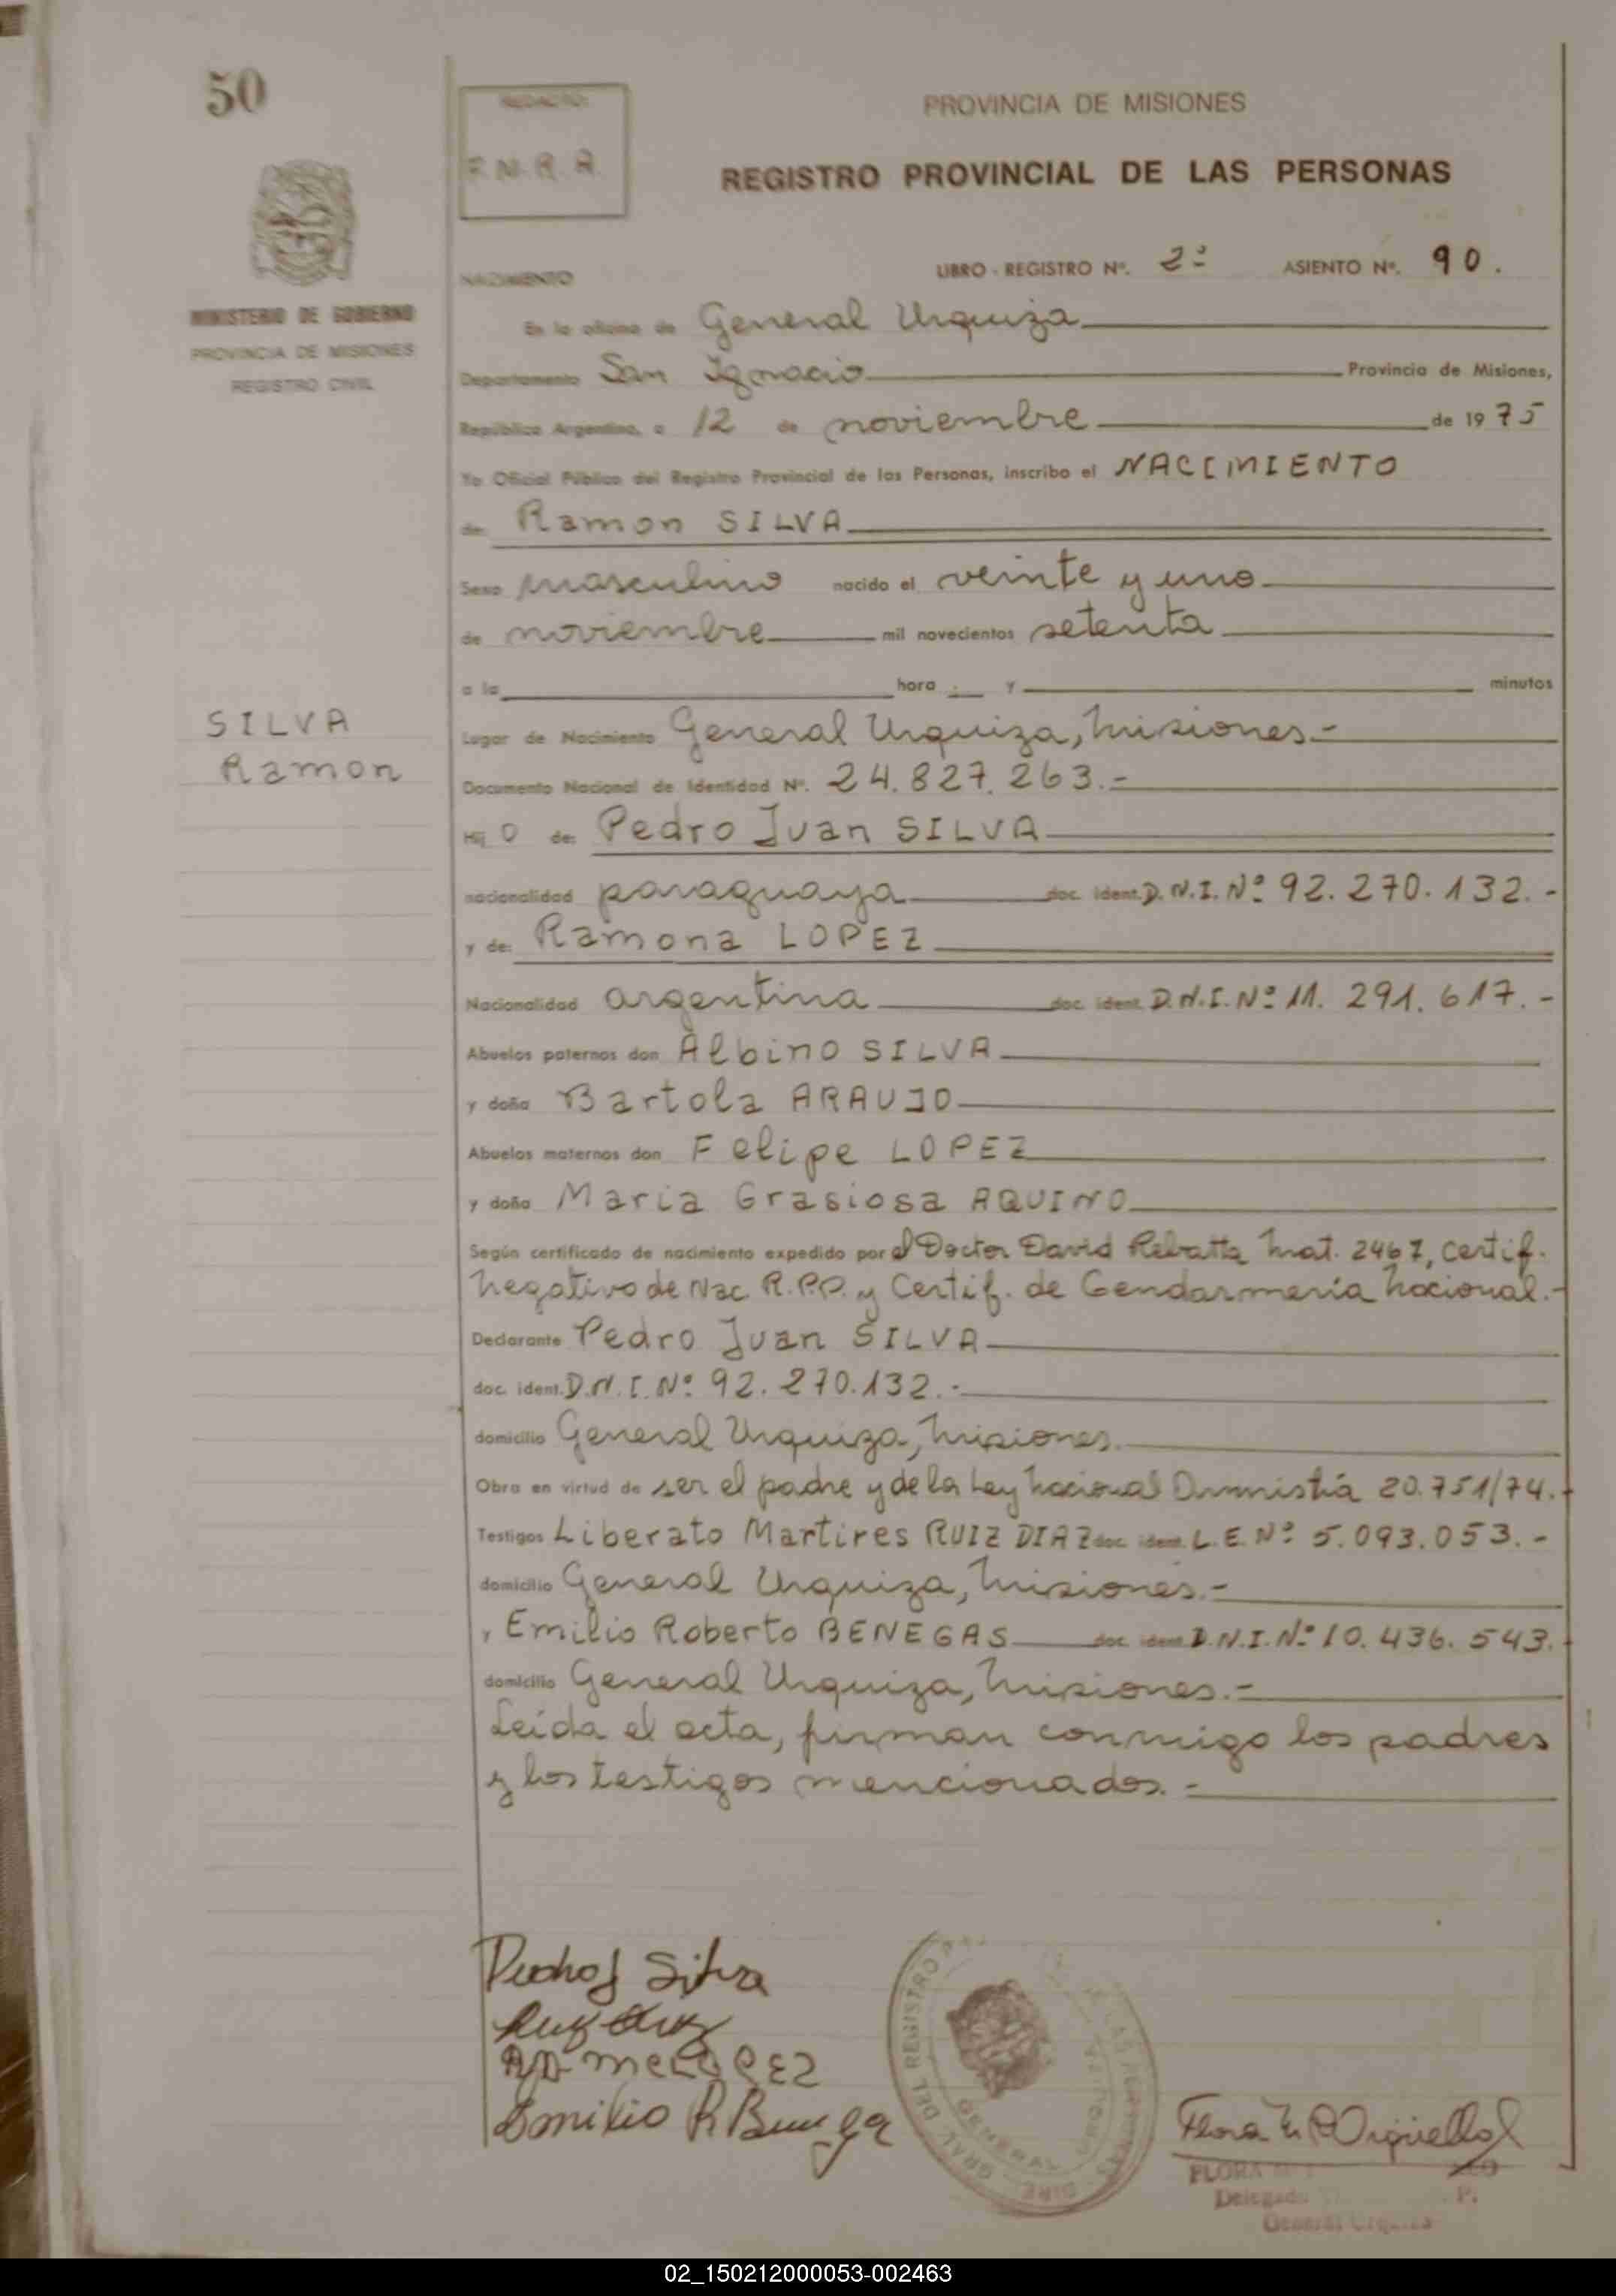 50
REDACTO:
F.N.R.A.
PROVINCIA DE MISIONES
REGISTRO PROVINCIAL DE LAS PERSONAS
MINISTERIO DE GOBIERNO
PROVINCIA DE MISIONES
REGISTRO CIVIL
LIBRO - REGISTRO Nº. 2º ASIENTO Nº. 90.
NACIMIENTO
En la oficina de General Urquiza
Departamento San Ignacio Provincia de Misiones,
República Argentina, a 12 de noviembre de 1975
Yo Oficial Público del Registro Provincial de las Personas, inscribo el NACIMIENTO
de Ramon SILVA
Sexo masculino nacido el veinte y uno
de noviembre mil novecientos setenta
a la hora y minutos
SILVA
Ramon
Lugar de Nacimiento General Urquiza, Misiones.-
Documento Nacional de Identidad Nº. 24.827.263.-
Hij o de: Pedro Juan SILVA
nacionalidad paraguaya doc. ident. D.N.I. Nº 92.270.132.-
y de: Ramona LOPEZ
Nacionalidad argentina doc. ident. D.N.I. Nº 11.291.617.-
Abuelos paternos don Albino SILVA
y doña Bartola ARAUJO
Abuelos maternos don Felipe LOPEZ
y doña Maria Grasiosa AQUINO
Según certificado de nacimiento expedido por el Doctor David Rebatta Mat. 2467, certif.
Negativo de Nac R.P.P. y Certif. de Gendarmería Nacional.-
Declarante Pedro Juan SILVA
doc. ident. D.N.I. Nº 92.270.132.-
domicilio General Urquiza, Misiones.
Obra en virtud de ser el padre y de la Ley Nacional Ammistía 20.751/74.-
Testigos Liberato Martires RUIZ DIAZ doc. ident. L.E. Nº 5.093.053.-
domicilio General Urquiza, Misiones.-
y Emilio Roberto BENEGAS doc. ident. D.N.I. Nº 10.436.543.-
domicilio General Urquiza, Misiones.-
Leída el acta, firman conmigo los padres
y los testigos mencionados.-
Pedro J Silva
Emilio R
FLORA
Delegado
General Urquiza
02_150212000053-002463